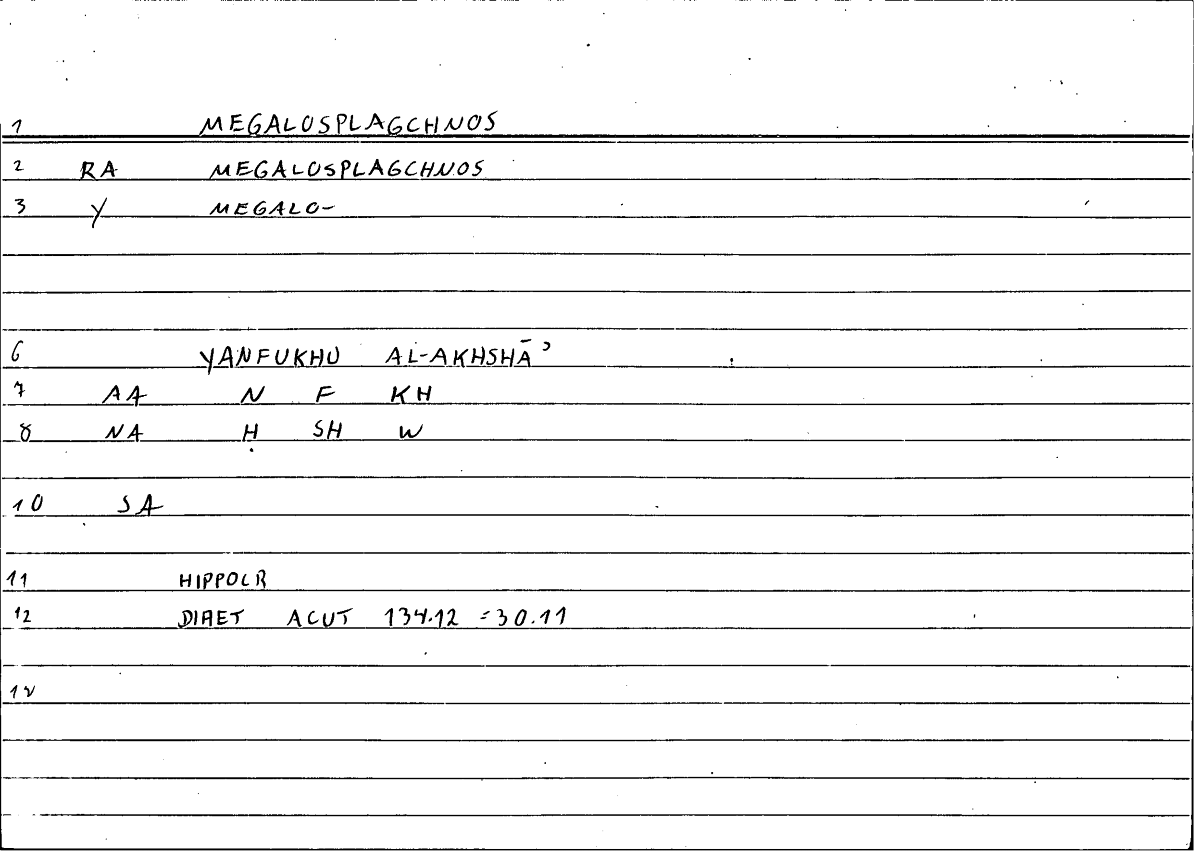 1 MEGALOSPLAGCHNOS
2 RA MEGALOSPLAGCHNOS
3 Y MEGALO-
6 YANFUKHU AL-AKHSHĀʾ
7 AA N F KH
8 NA Ḥ SH W
10 SA
11 HIPPOCR
12 DIAET ACUT 134.12 =30.11